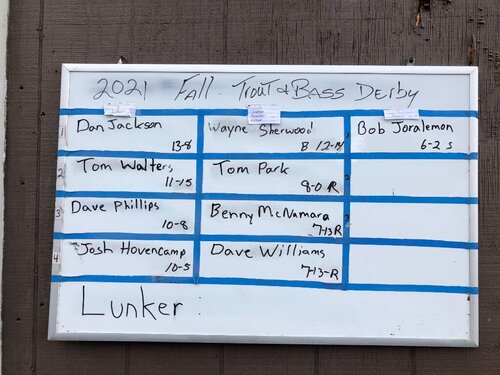 2021 Fall Trout & Bass Derby
1 Dan Jackson
13-8
Wayne Sherwood
1 Bob Joralemon
6-2 S
2 Tom Walters
11-15
Tom Park
8-0 R
2
3 Dave Phillips
10-8
Benny McNamara
7-13 R
3
4 Josh Hovencamp
10-5
Dave Williams
7-13-R
Lunker: